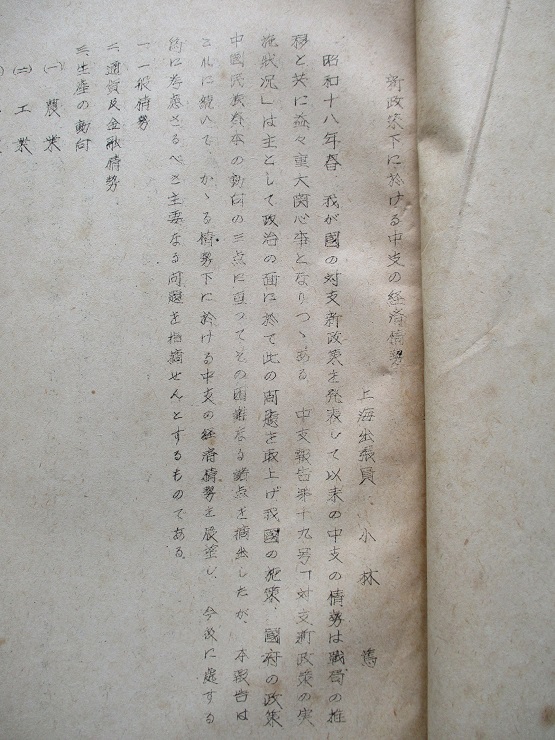 新政策下に於ける中支の経済情勢
上海出張員 小林 篤
昭和十八年春、我が國の対支新政策を発表して以来の中支の情勢は戦局の推
移と共に益々重大関心事となりつゝある 中支報告第十九号「対支新政策の実
施状況」は主として政治の面に於て此の問題を取上げ我國の施策、國府の政策
中國民族資本の動向の三点に亘つてその困難なる諸点を摘出したが、本報告は
これに続いて かゝる情勢下に於ける中支の経済情勢を展望し、今後に處する
為に考慮さるべき主要なる問題を指摘せんとするものである。
一、一般情勢
二、通貨及金融情勢
三、生産の動向
(一) 農業
(二) 工業